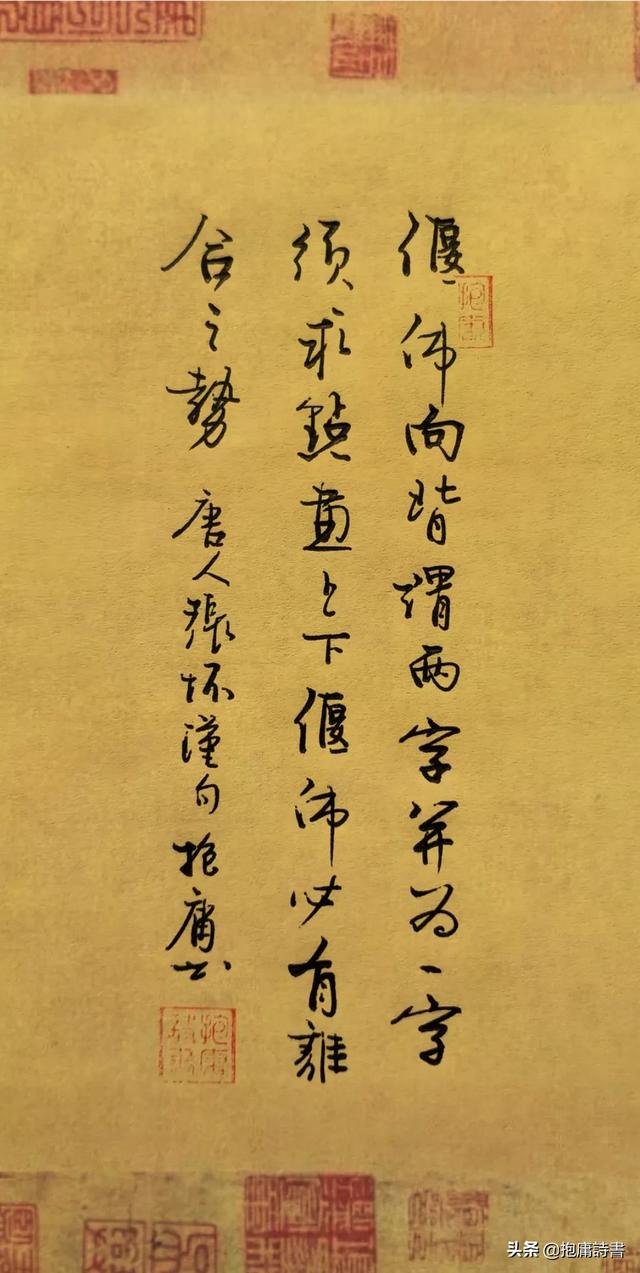 偃仰向背謂兩字并为一字
须求點畫上下偃仰必有離
合之勢 唐人張怀瑾句 抱庸书
抱庸
头条 @抱庸詩書